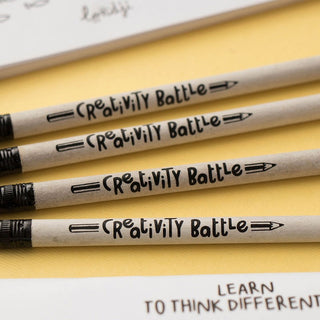 CREATIVITY BATTLE
CREATIVITY BATTLE
CREATIVITY BATTLE
CREATIVITY BATTLE
LEARN
TO THINK DIFFERENT